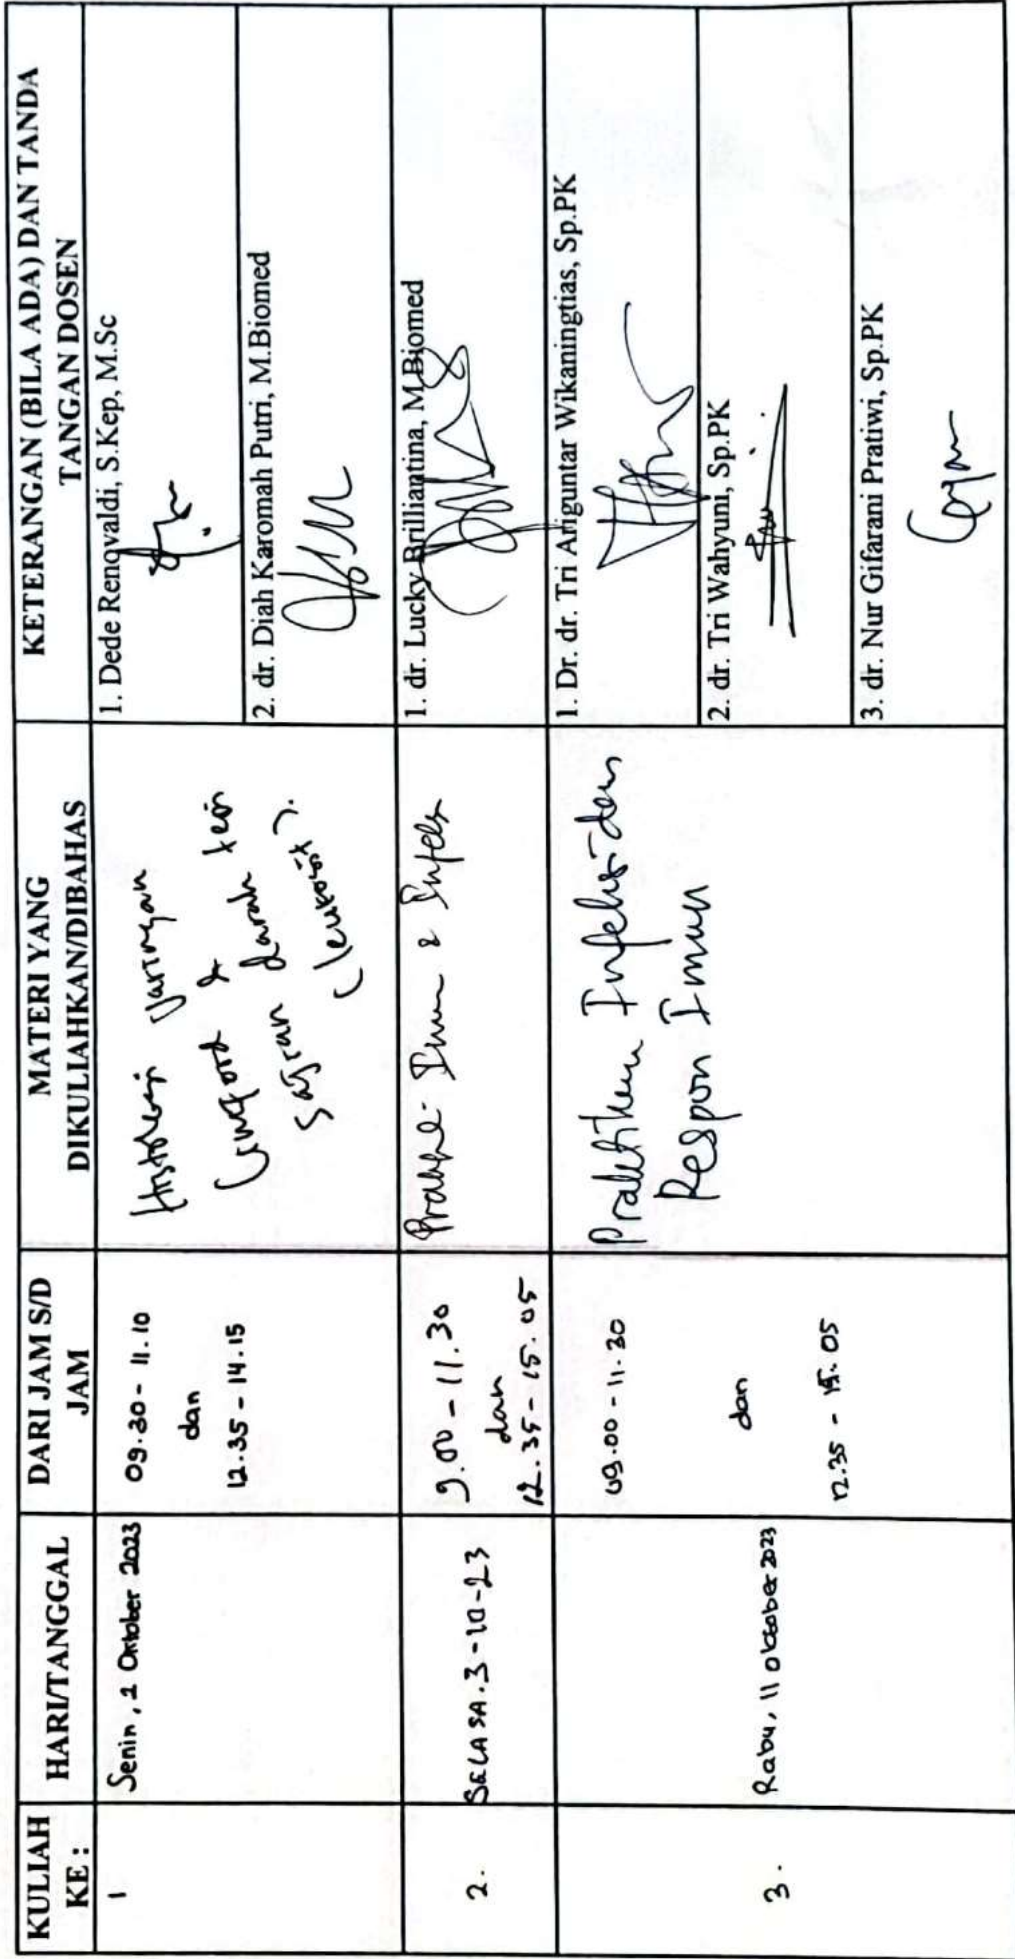 KULIAH
KE :
HARI/TANGGAL
DARI JAM S/D
JAM
MATERI YANG
DIKULIAHKAN/DIBAHAS
KETERANGAN (BILA ADA) DAN TANDA
TANGAN DOSEN
1
Senin, 2 Oktober 2023
09.30 - 11.10
dan
12.35 - 14.15
Histologi Jaringan
Limfoid &
Sajian darah tepi
(leukosit).
1. Dede Renovaldi, S.Kep, M.Sc
2. dr. Diah Karomah Putri, M.Biomed
2.
SELASA. 3-10-23
9.00 - 11.30
dan
12.35 - 15.05
Imun & Infeksi
1. dr. Lucky Brilliantina, M.Biomed
3.
Rabu, 11 oktober 2023
09.00 - 11.30
dan
12.35 - 15.05
Praktikum Infeksi dan
Respon Imun
1. Dr. dr. Tri Ariguntar Wikaningtias, Sp.PK
2. dr. Tri Wahyuni, Sp.PK
3. dr. Nur Gifarani Pratiwi, Sp.PK